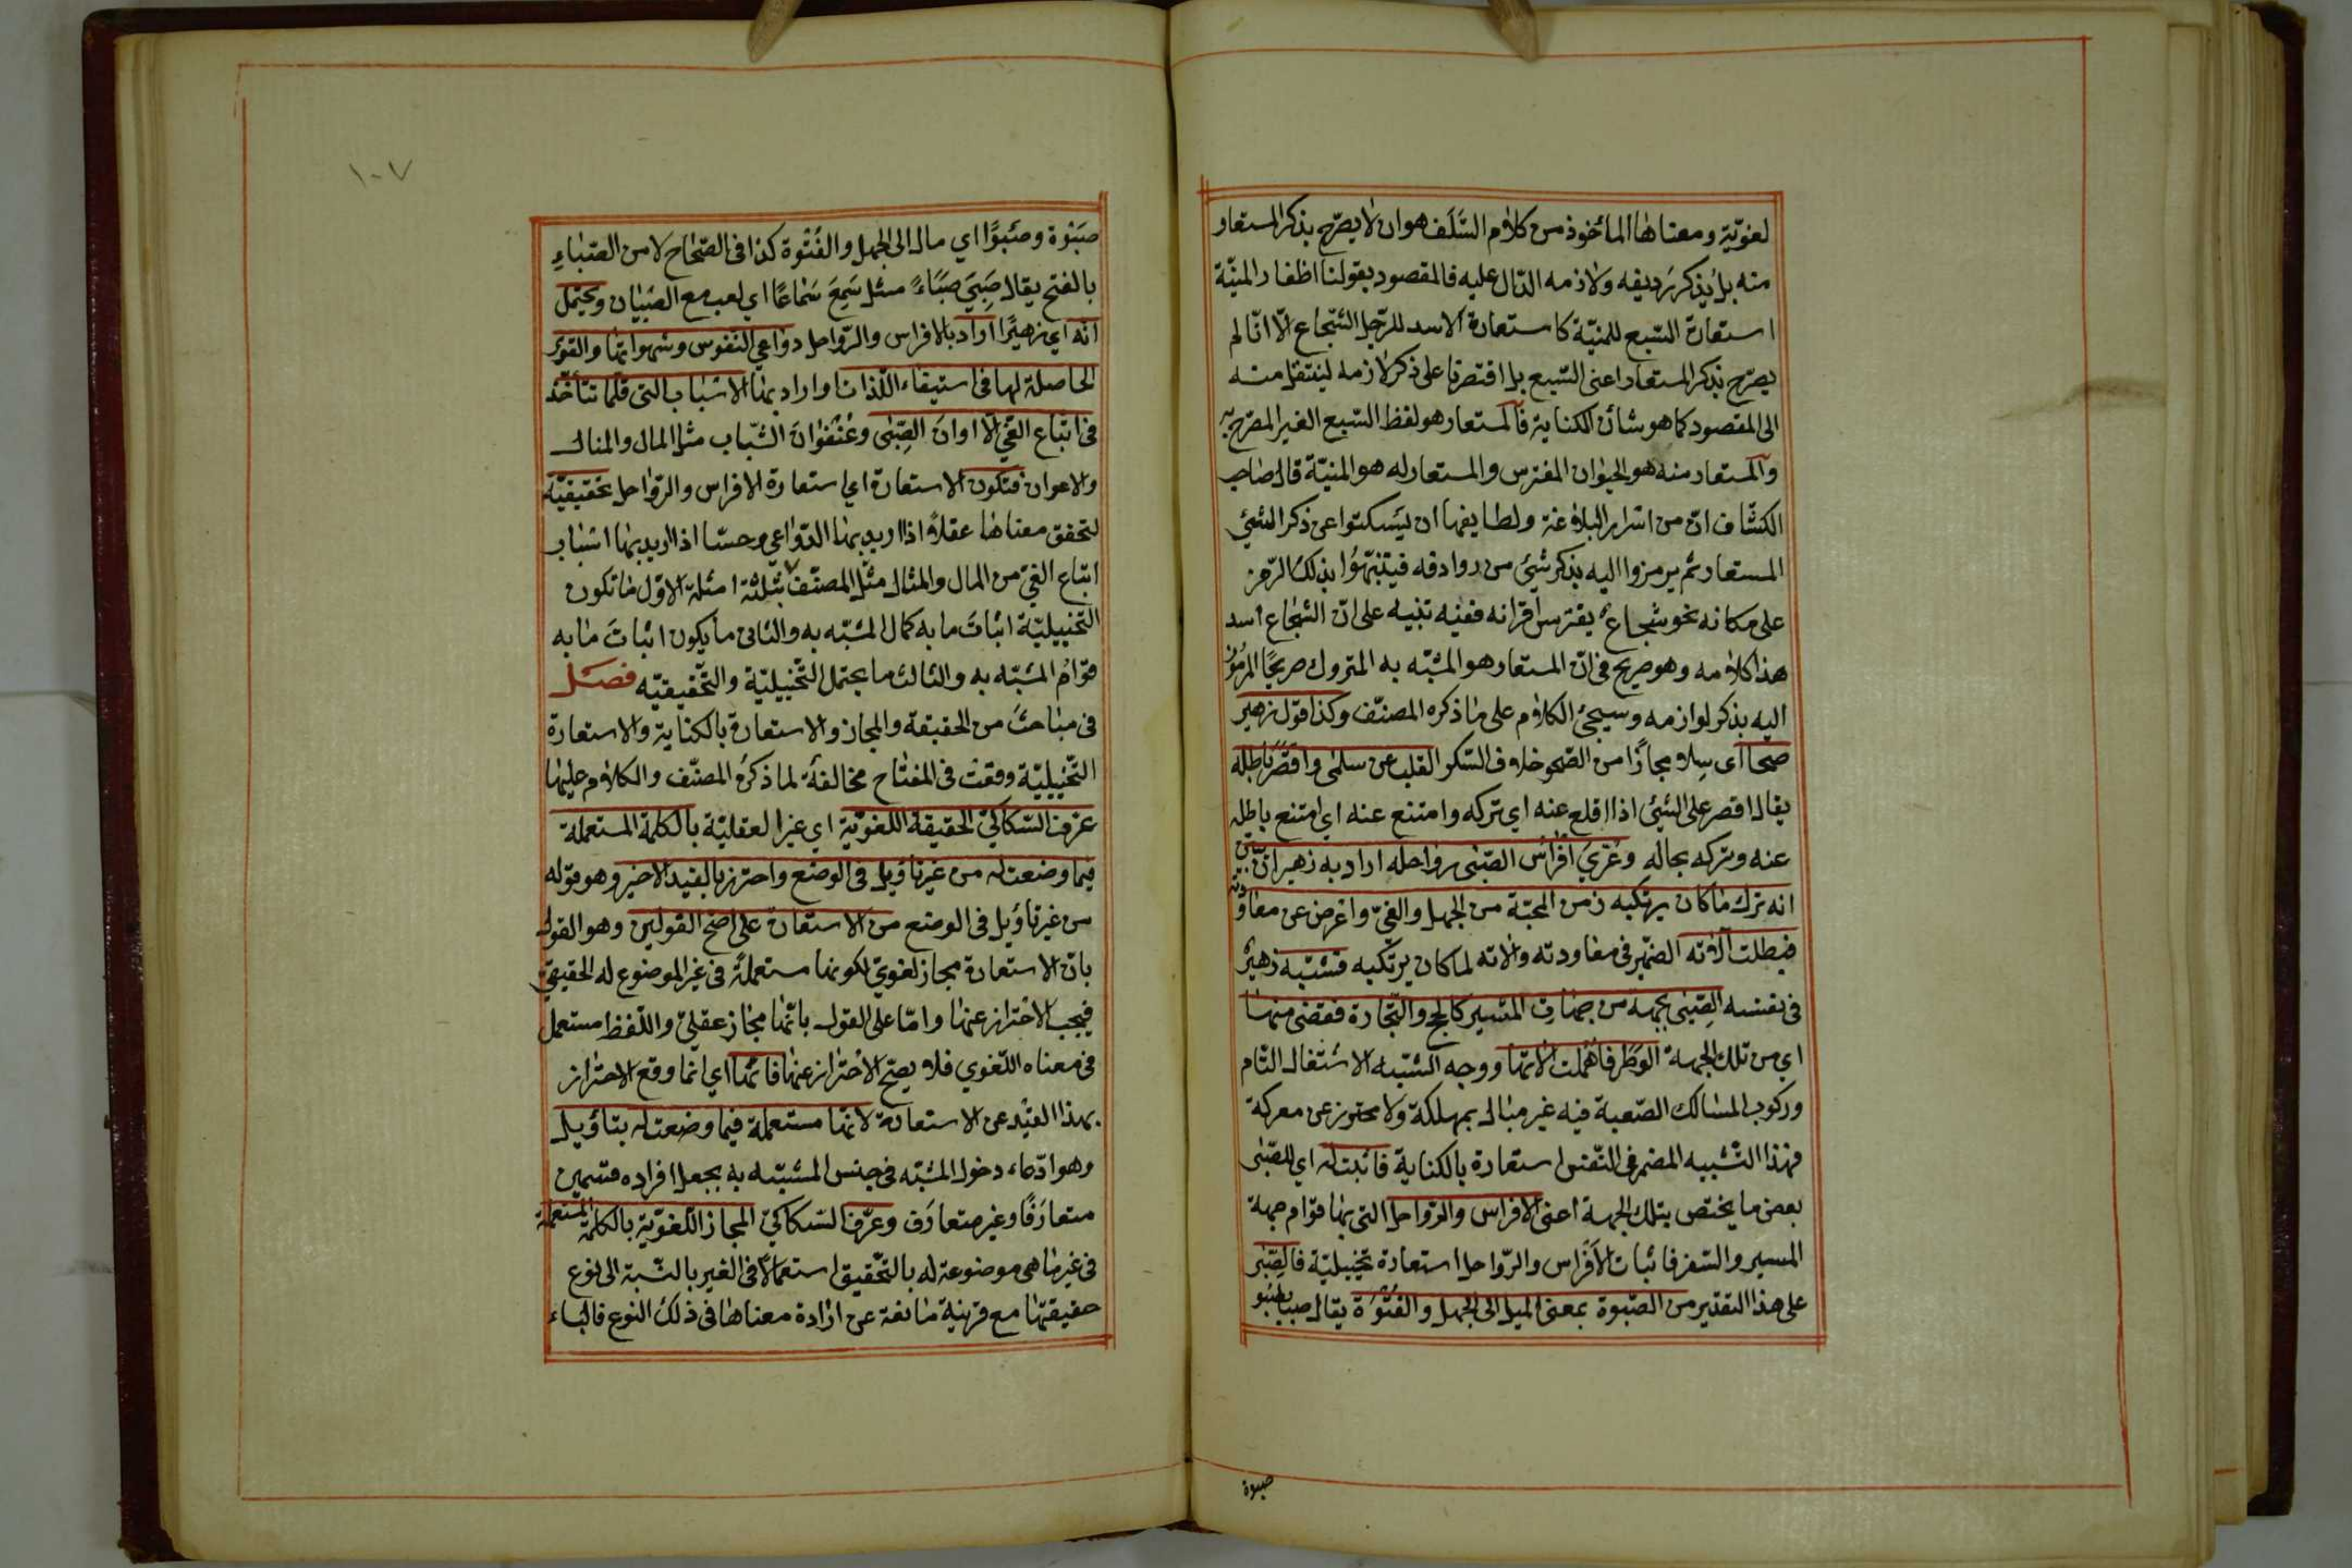 لغويّة ومعناها المأخوذ من كلام السَّلَف هو ان لا يصرّح بذكر المستعار
منه بل يُذكر رديفه ولازمه الدّال عليه فالمقصود بقولنا اظفار المنيّة
استعارة السّبع للمنيّة كاستعارة الاسد للرّجل الشّجاع الّا انّا لم
يصرّح بذكر المستعار اعنى السّبع بل اقتصرنا على ذكر لازمه لينتقل منه
الى المقصود كما هو شأن الكناية فالمستعار هو لفظ السّبع الغير المصرّح به
والمستعار منه هو الحيوان المفترس والمستعار له هو المنيّة قال صاحب
الكشّاف انّ من اسرار البلاغة ولطايفها ان يَسكتوا عن ذكر الشئي
المستعار ثم يرمزوا اليه بذكر شئ من روادفه فيُنبّهُوا بذلك الرّمز
على مكانه نحو شجاع يفترس اقرانه ففيه تنبيه على انّ الشّجاع اسد
هذا كلامه وهو صريح فى انّ المستعار هو المشبّه به المتروك صريحًا المرموز
اليه بذكر لوازمه وسيجئ الكلام على ما ذكره المصنّف وكذا قول زهير
صحا اى سلا مجازًا من الصّحو خلاف السّكر القلب عن سلمى واقصَرَ باطله
يقال اقصر على الشئي اذا اقلع عنه اي تركه وامتنع عنه اي امتنع باطله
عنه وتركه بحاله وعُرّيَ افراس الصّبى رواحله اراد به زهير ان يبيّن
انه ترك ما كان يرتكبه زمن المحبّة من الجهل والغىّ واعرض عن معاودته
فبطلت آلاته الضّمير فى معاودته وآلاته لما كان يرتكبه فشبّه زهيرٌ
فى نفسه الصِّبى بجهة من جهات المسير كالحج والتّجارة فقضى منها
اي من تلك الجهة الوَطَر فأهملت آلاتها ووجه الشّبه الاشتغال التّام
وركوب المسالك الصّعبة فيه غير مبال بمهلكة ولا محترز عن معركة
فهذا التّشبيه المضمر فى النّفس استعارة بالكناية فاثبت له اي للصّبى
بعض ما يختص بتلك الجهة اعنى الافراس والرّواحل التى بها قوام جهة
المسير والسّفر فاثبات الافراس والرّواحل استعارة تخييليّة فالصّبى
على هذا التقدير من الصّبوة بمعنى الميل الى الجهل والفُتُوّة يقال صبا يصبو
صبوة
١٠٧
صَبْوة وصُبوًّا اي مال الى الجهل والفُتُوة كذا فى الصّحاح لا من الصّباءِ
بالفتح يقال صَبِيَ صَبَاءً مثل سَمِعَ سَماعًا اي لعب مع الصّبيان ويحتمل
انه اي زهيرًا اراد بالافراس والرّواحل دواعي النّفوس وشهواتها والقوى
الحاصلة لها فى استيفاء اللّذات او اراد بها الاسباب التى قلّما تتأخّذ
فى اتباع الغىّ الّا اوان الصِّبٰى وعُنْفُوان الشّباب مثل المال والمنال
والاعوان فتكون الاستعارة اي استعارة الافراس والرّواحل تحقيقيّة
لتحقق معناها عقلاً اذا اريد بها الدّواعي وحسّا اذا اريد بها اسباب
اتباع الغىّ من المال والمنال مثّل المصنّف بثلثة امثلة الاوّل ما تكون
التّخييليّة اثباتَ ما به كمال المشبّه به والثانى ما يكون اثباتَ ما به
قوامُ المشبّه به والثالث ما يحتمل التّخييليّة والتّحقيقيّه فصل
فى مباحث من الحقيقة والمجاز والاستعارة بالكناية والاستعارة
التّخييليّة وقعت فى المفتاح مخالفَة لما ذكرَهُ المصنّف والكلام عليها
عرّف السّكاكىّ الحقيقة اللّغويّة اي غير العقليّة بالكلمة المستعملة
فيما وضعت له من غير تاويل فى الوضع واحترز بالقيد الاخير وهو قوله
من غير تاويل فى الوضع من الاستعارة على اصحّ القولين وهو القول
بانّ الاستعارة مجاز لغويّ لكونها مستعملةً فى غير الموضوع له الحقيقىّ
فيجب الاحتراز عنها وامّا على القول بانّها مجاز عقلىّ واللّفظ مستعمل
فى معناه اللّغوي فلا يصحّ الاحتراز عنها فانّها اي انما وقع الاحتراز
بهذا القيد عن الاستعارة لانها مستعملة فيما وضعت له بتاويل
وهو ادّعاء دخول المشبّه فى جنس المشبّه به بجعل افراده قسمين
متعارَفًا وغير متعارَف وعرّف السّكاكىّ المجاز اللّغويّة بالكلمة المستعملة
فى غير ما هى موضوعة له بالتّحقيق استعمالاً فى الغير بالنّسبة الى نوع
حقيقتها مع قرينة مانعة عن ارادة معناها فى ذلك النوع فالباء